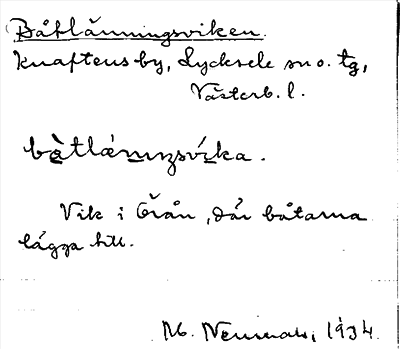 Båtlänningsviken
Knaftens by, Lycksele sn o. tg,
Västerb. l.
bàtlániŋsvíka.
Vik i Örån, där båtarna
lägga till.
M. 1934.